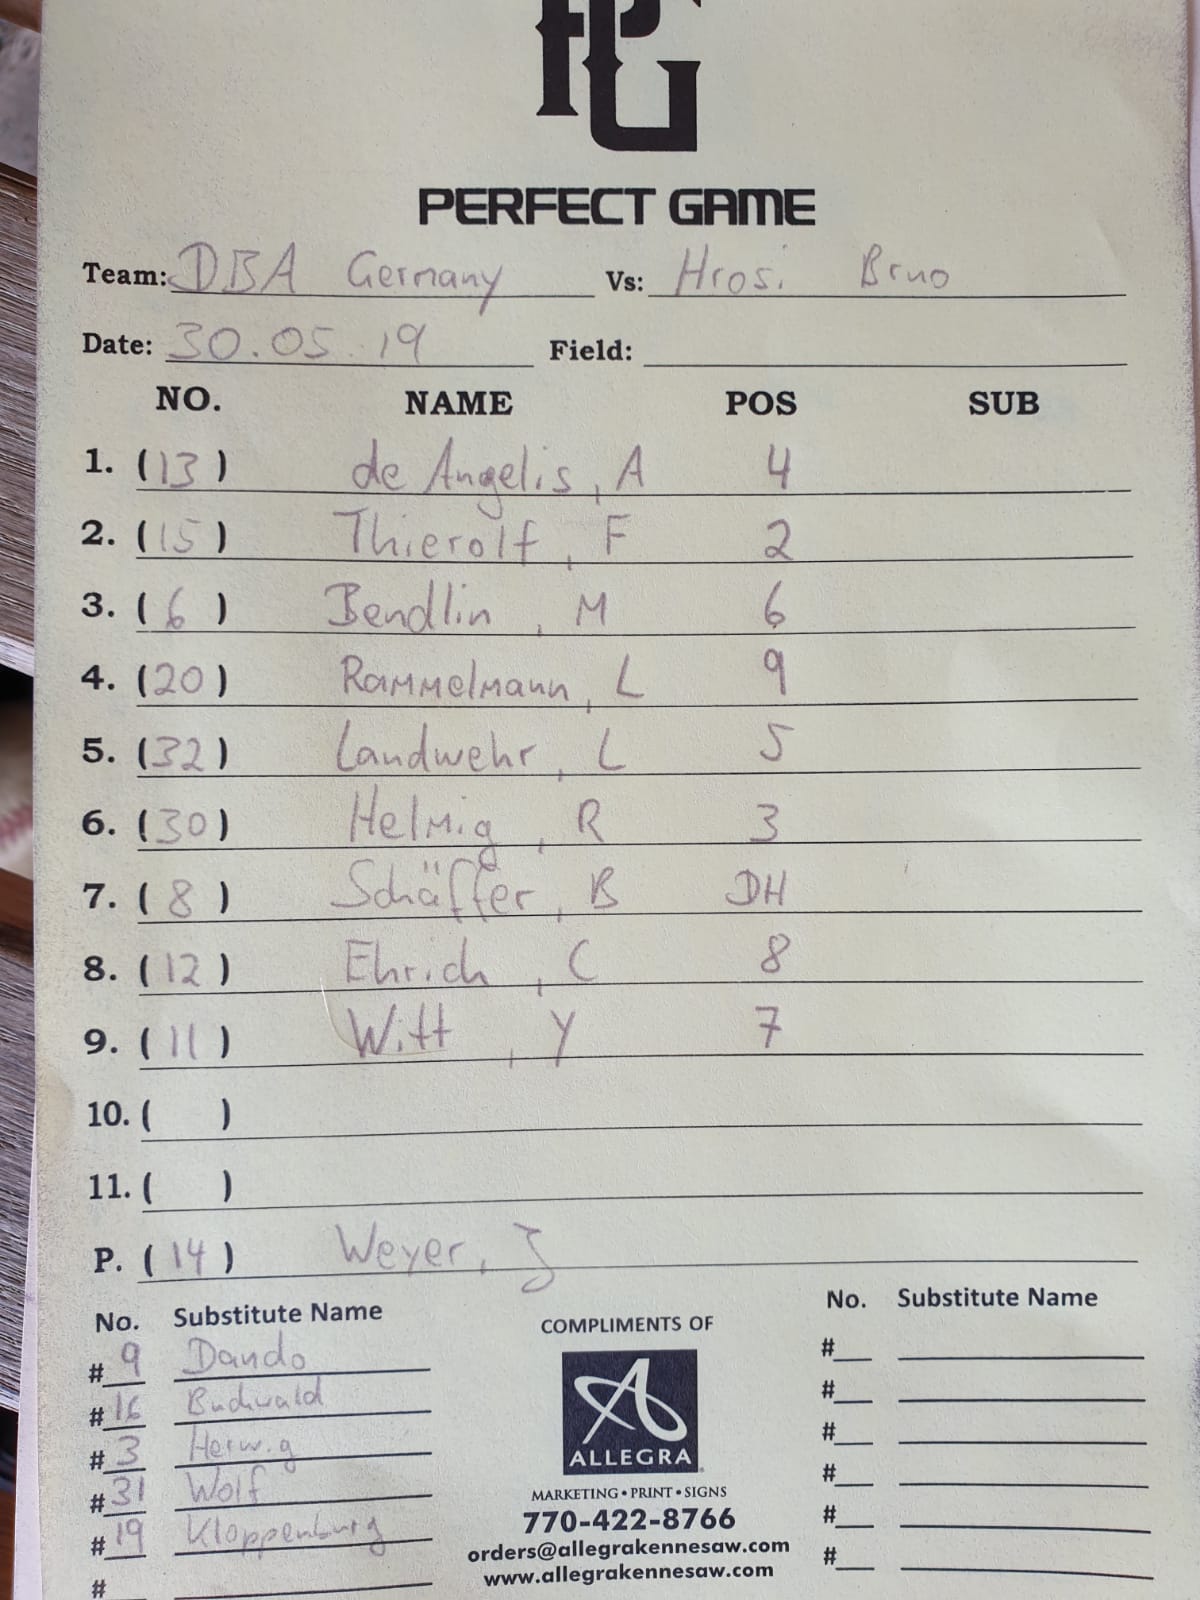 PG
PERFECT GAME
Team: DBA Germany Vs: Hrosi Brno
Date: 30.05.19 Field:
NO. NAME POS SUB
1. (13) de Angelis, A 4
2. (15) Thierolf, F 2
3. (6) Bendlin, M 6
4. (20) Rammelmann, L 9
5. (32) Landwehr, L 5
6. (30) Helmig, R 3
7. (8) Schäffer, B DH
8. (12) Ehrich, C 8
9. (11) Witt, Y 7
10. ( )
11. ( )
P. (14) Weyer, J
No. Substitute Name
#9 Dando
#16 Buchwald
#3 Herwig
#31 Wolf
#19 Kloppenburg
#
COMPLIMENTS OF
ALLEGRA
MARKETING • PRINT • SIGNS
770-422-8766
orders@allegrakennesaw.com
www.allegrakennesaw.com
No. Substitute Name
#
#
#
#
#
#